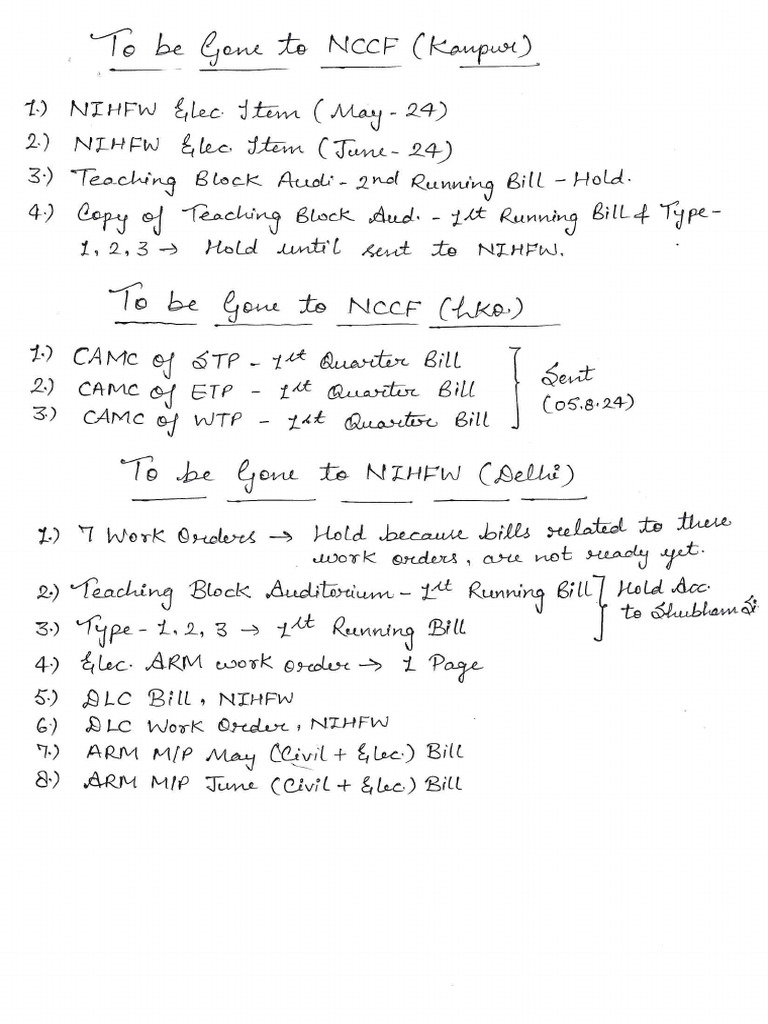 To be Gone to NCCF (Kanpur)
1.) NIHFW Elec. Item (May - 24)
2.) NIHFW Elec. Item (June - 24)
3.) Teaching Block Audi - 2nd Running Bill - Hold.
4.) Copy of Teaching Block Aud. - 1st Running Bill & Type -
1, 2, 3 → Hold until sent to NIHFW.
To be Gone to NCCF (LKO.)
1.) CAMC of STP - 1st Quarter Bill
2.) CAMC of ETP - 1st Quarter Bill
3.) CAMC of WTP - 1st Quarter Bill
Sent
(05.8.24)
To be Gone to NIHFW (Delhi)
1.) 7 Work Orders → Hold because bills related to these
work orders, are not ready yet.
2.) Teaching Block Auditorium - 1st Running Bill
3.) Type - 1, 2, 3 → 1st Running Bill
Hold Acc.
to Shubham Si
4.) Elec. ARM work order → 1 Page
5.) DLC Bill, NIHFW
6.) DLC Work Order, NIHFW
7.) ARM M/P May (Civil + Elec.) Bill
8.) ARM M/P June (Civil + Elec.) Bill